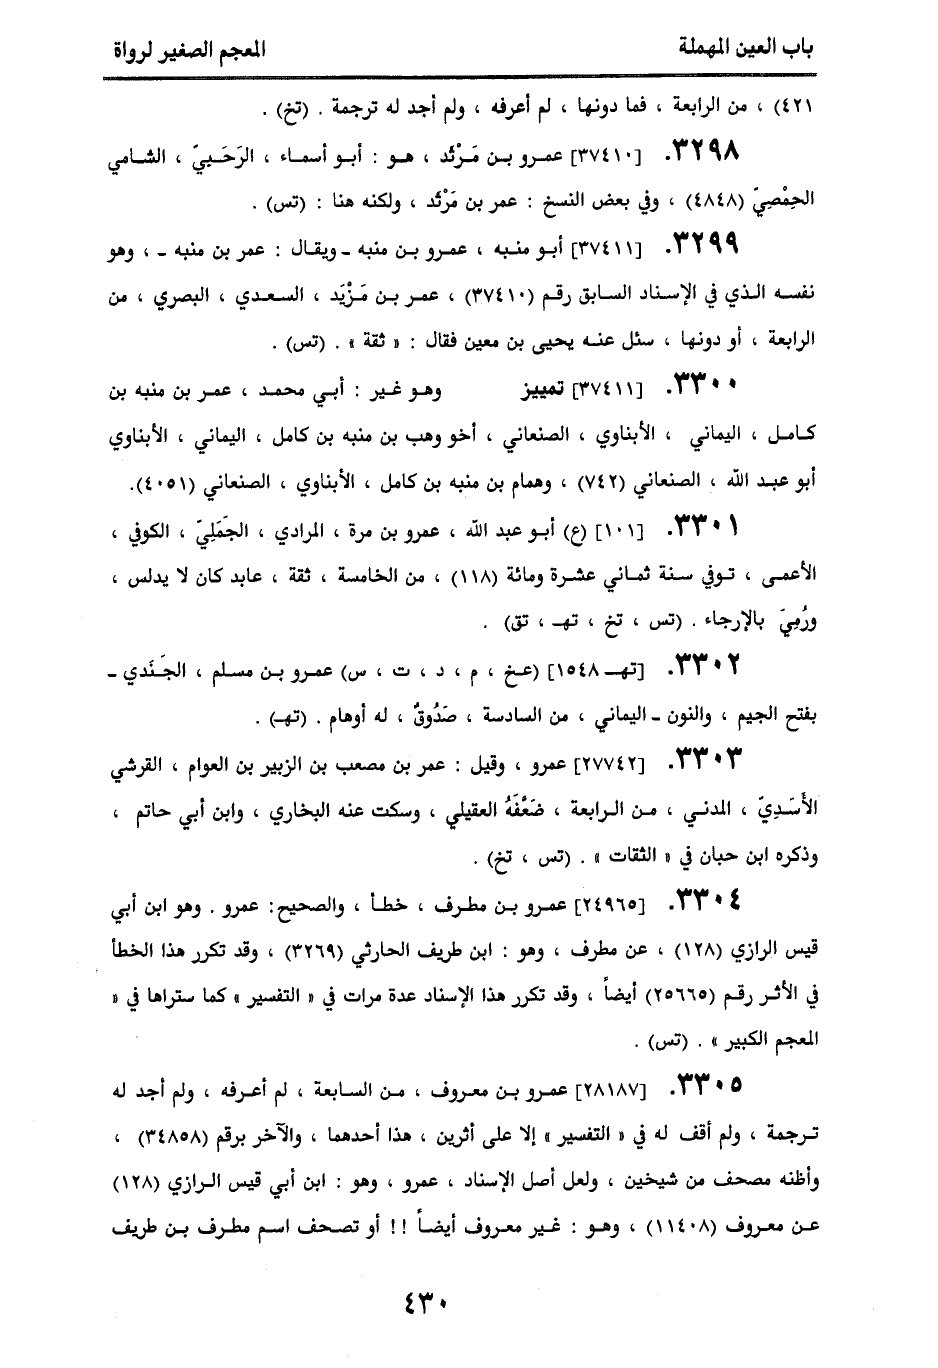 باب العين المهملة
المعجم الصغير لرواة
٤٢١) ، من الرابعة ، فما دونها ، لم أعرفه ، ولم أجد له ترجمة . (تخ) .
٣٢٩٨. [٣٧٤١٠] عمرو بن مَرْثَد ، هو : أبو أسماء ، الرَحَبيّ ، الشامي
الحِمْصِيّ (٤٨٤٨) ، وفي بعض النسخ : عمر بن مَرْثَد ، ولكنه هنا : (تس) .
٣٢٩٩. [٣٧٤١١] أبو منبه ، عمرو بن منبه ـ ويقال : عمر بن منبه ـ ، وهو
نفسه الذي في الإسناد السابق رقم (٣٧٤١٠) ، عمر بن مَزْيَد ، السعدي ، البصري ، من
الرابعة ، أو دونها ، سئل عنه يحيى بن معين فقال : « ثقة » . (تس) .
٣٣٠٠. [٣٧٤١١] تمييز وهو غير : أبي محمد ، عمر بن منبه بن
كامل ، اليماني ، الأبناوي ، الصنعاني ، أخو وهب بن منبه بن كامل ، اليماني ، الأبناوي
أبو عبد الله ، الصنعاني (٧٤٢) ، وهمام بن منبه بن كامل ، الأبناوي ، الصنعاني (٤٠٥١).
٣٣٠١. [١٠١] (ع) أبو عبد الله ، عمرو بن مرة ، المرادي ، الجَمَلِيّ ، الكوفي ،
الأعمى ، توفي سنة ثماني عشرة ومائة (١١٨) ، من الخامسة ، ثقة ، عابد كان لا يدلس ،
ورُمِيَ بالإرجاء . (تس ، تخ ، تهـ ، تق) .
٣٣٠٢. [تهـ ١٥٤٨] (عخ ، م ، د ، ت ، س) عمرو بن مسلم ، الجَنَدي ـ
بفتح الجيم ، والنون ـ اليماني ، من السادسة ، صَدُوقٌ ، له أوهام . (تهـ) .
٣٣٠٣. [٢٧٧٤٢] عمرو ، وقيل : عمر بن مصعب بن الزبير بن العوام ، القرشي
الأَسَدِيّ ، المدني ، من الرابعة ، ضَعَّفَهُ العقيلي ، وسكت عنه البخاري ، وابن أبي حاتم ،
وذكره ابن حبان في « الثقات » . (تس ، تخ) .
٣٣٠٤. [٢٤٩٦٥] عمرو بن مطرف ، خطأ ، والصحيح: عمرو . وهو ابن أبي
قيس الرازي (١٢٨) ، عن مطرف ، وهو : ابن طريف الحارثي (٣٢٦٩) ، وقد تكرر هذا الخطأ
في الأثر رقم (٢٥٦٦٥) أيضاً ، وقد تكرر هذا الإسناد عدة مرات في « التفسير » كما ستراها في «
المعجم الكبير » . (تس) .
٣٣٠٥. [٢٨١٨٧] عمرو بن معروف ، من السابعة ، لم أعرفه ، ولم أجد له
ترجمة ، ولم أقف له في « التفسير » إلا على أثرين ، هذا أحدهما ، والآخر برقم (٣٤٨٥٨) ،
وأظنه مصحف من شيخين ، ولعل أصل الإسناد ، عمرو ، وهو : ابن أبي قيس الرازي (١٢٨)
عن معروف (١١٤٠٨) ، وهو : غير معروف أيضاً !! أو تصحف اسم مطرف بن طريف
٤٣٠